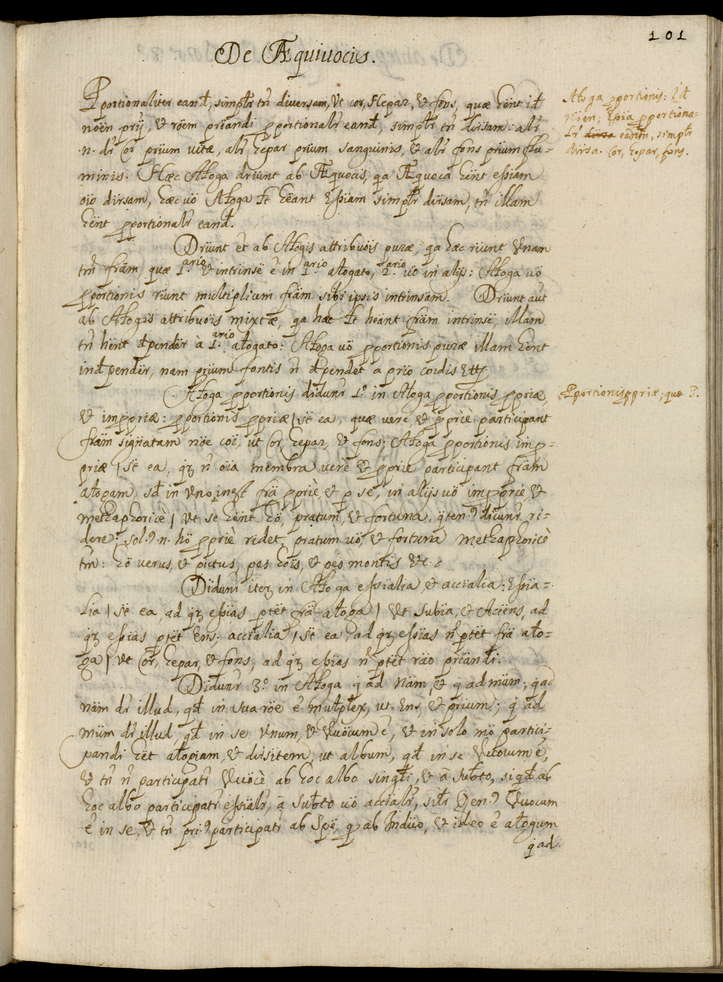 101
De Æquiuocis.
Pportionaliter eand, simplr tn diversam, Vt cor, Hepar, & fons, quæ hent id
noen prij, & röem priandi pportionalr eand, simplr tn dirsam: alr
n. dr Cor prium vitæ, alr hepar prium sanguinis, & alr fons prium flu=
minis. Hæc Aloga driunt ab Æquocis, qa Æqueca hent essiam
oio dirsam, hæc uö Aloga lt heant Essiam simplr dirsam, tn illam
hent pportionalr eand.
Driunt et ab Alogis attribuois puræ; qa hæc riunt Vnam
tm fram, quæ 1.ario & intrinsë ë in 1.ario alogato, 2.ario uö in alijs: Aloga uö
pportionis riunt multiplicem främ sibi ipsis intrinsam. Driunt aut
ab Alogis attribuois mixtæ, qa hæc lt heänt främ intrinsë, illam
tn hënt dpendër à 1.ario alogato: Aloga uö pportionis puræ illam hënt
indpendër, nam prium fontis n dpendet a prio cordis &
Aloga pportionis didunr 1º in Aloga pportionis ppriæ
& impropriæ: pportionis ppriæ | st ea, quæ vere & ppriè participant
främ signatam nöe coi, ut cor, hepar, & fons; Aloga pportionis imp=
priæ | st ea, qz n oia membra verè & ppriè participant främ
alogam, sd in vno inest frä ppriè, & p se, in alijs uö impropriè &
methaphoricè | Vt se hënt hö, pratum, & fortuna, qten9 dicunr ri=
dere: sol9 n. hö ppriè ridet, pratum uö, & fortuna methaphoricè
tm: hö verus, & pictus, pes höis, & pes montis &c.
Didunr itez in Aloga essialia, & accialia: Essia=
lia | st ea, ad qz essias ptët frä aloga | Vt subia, & Aciens, ad
qz essias ptët Ens. accialia | st ea, ad qz essias n ptët frä alo=
ga | Vt cor, hepar, & fons, ad qz essias n ptët räo priandi.
Didunr 3.º in Aloga q ad näm, & q ad müm; q ad
näm dr illud, qd in sua röe ë multiplex, ut Ens, & prium; q ad
müm dr illud, qd in se Vnum, & Vuöcum ë, & in solo mö partici=
pandi hët alogiam, & dirsitem, ut album, qd in se Vuöcum ë,
& tn n participatr Vuöcè ab hoc albo singlri, & a subto, siqd ab
hoc albo participatr essialr, a subto uö accialr, silr Gen9 Vuocum
ë in se, & tn pri9 participatr ab Spë, q ab Induo, & ideo ë alogum
q ad
Aloga pportionis: lt
nöen; Essia pportiona=
lr dirsa eadem, simplr
dirsa. Cor, hepar, fons.
Pportionis ppriæ; quæ ?